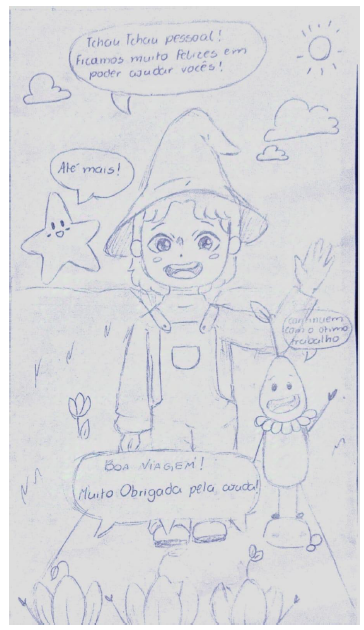 Tchau Tchau pessoal!
Ficamos muito felizes em
poder ajudar vocês!
Até mais!
continuem
com o ótimo
trabalho
BOA VIAGEM!
Muito Obrigada pela ajuda!